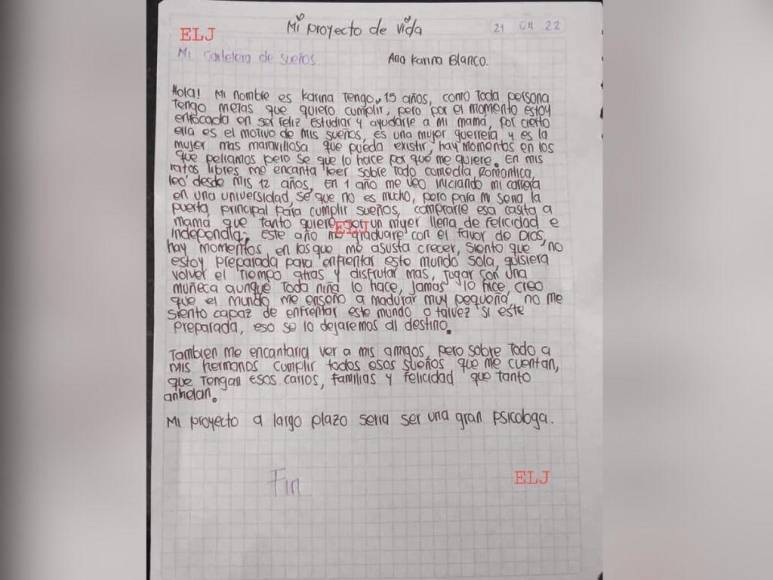 ELJ
Mi proyecto de vida
21 01 22
Mi cartelera de sueños
Ana Karina Blanco.
Hola! Mi nombre es karina Tengo 15 años, como Toda persona
Tengo metas que quiero cumplir, pero por el momento estoy
enfocada en ser feliz estudiar y ayudarle a mi mamá, por cierto
ella es el motivo de mis sueños, es una mujer guerrera, y es la
mujer mas maravillosa que pueda existir, hay momentos en los
que peliamos pero se que lo hace por qué me quiere. En mis
ratos libres me encanta leer sobre Todo comedia Romantica,
leo desde mis 12 años, en 1 año me veo iniciando mi carrera
en una universidad, se que no es mucho, pero para mi seria la
puerta principal para cumplir sueños, comprarle esa casita a
mamá que tanto quiere, ser un mujer llena de felicidad e
ELJ
independia; este año me graduare con el favor de Dios,
hay momentos en los que me asusta crecer, siento que no
estoy preparada para enfrentar este mundo sola, quisiera
volver el Tiempo atras y disfrutar mas, jugar con una
muñeca aunque Toda niña lo hace, jamas lo hice, creo
que el mundo me enseño a madurar muy pequeña, no me
siento capaz de enfrentar este mundo o talvez si este
preparada, eso se lo dejaremos al destino.
Tambien me encantaria ver a mis amigos, pero sobre Todo a
mis hermanos cumplir todos esos sueños que me cuentan,
que Tengan esos carros, familias y felicidad que tanto
anhelan.
Mi proyecto a largo plazo seria ser una gran psicologa.
Fin
ELJ